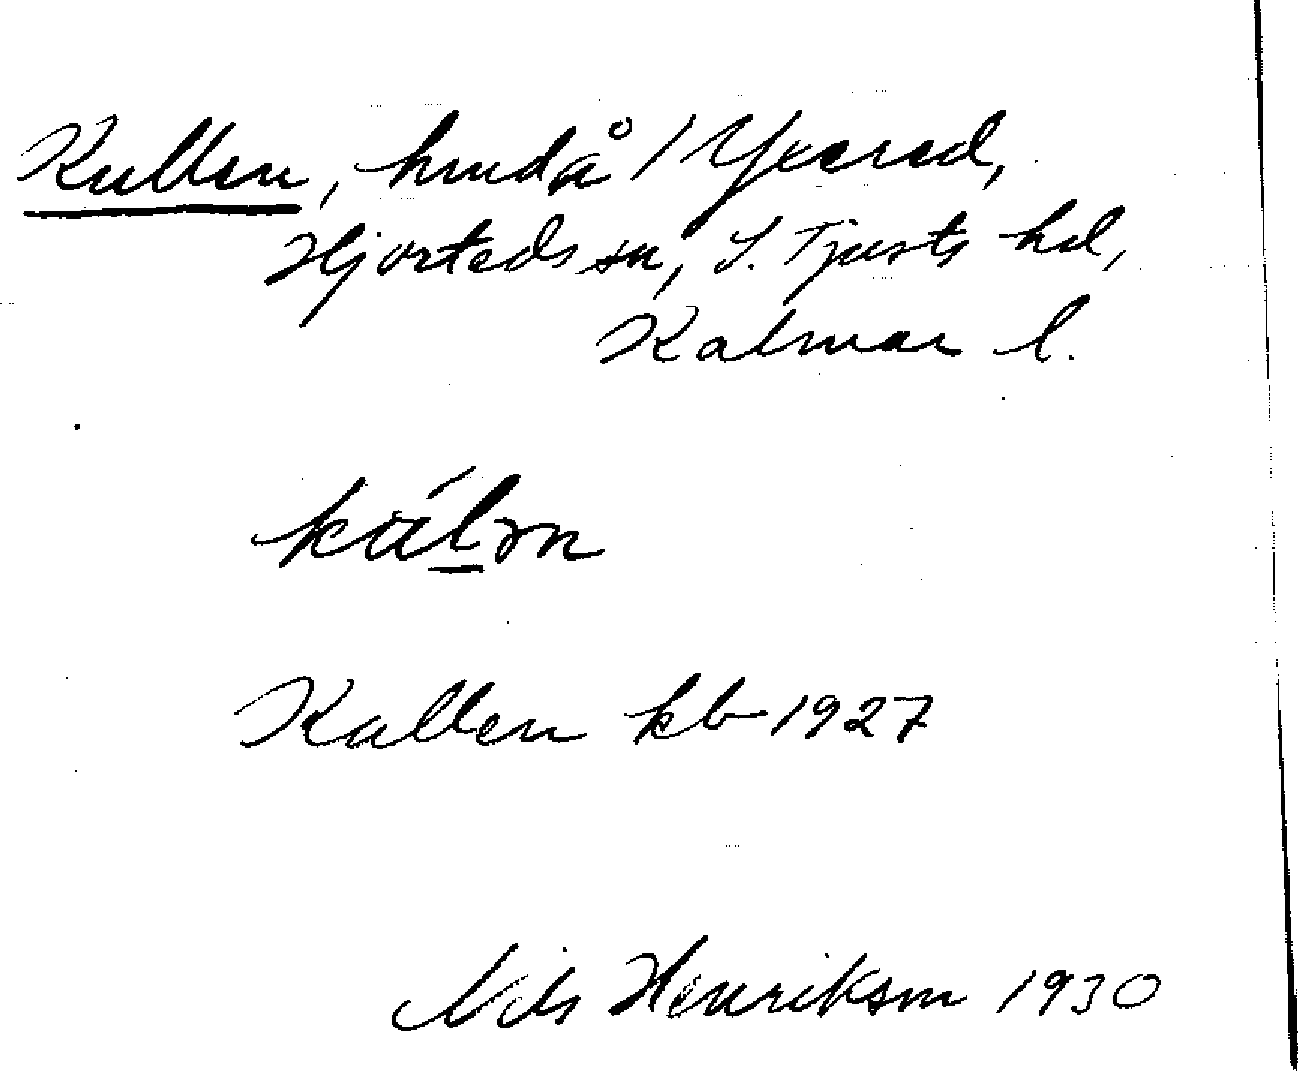 Kullen, hmd å Yxered,
Hjorteds sn, S. Tjusts hd,
Kalmar l.
Kallen kb 1927
Nils Henrikson 1930